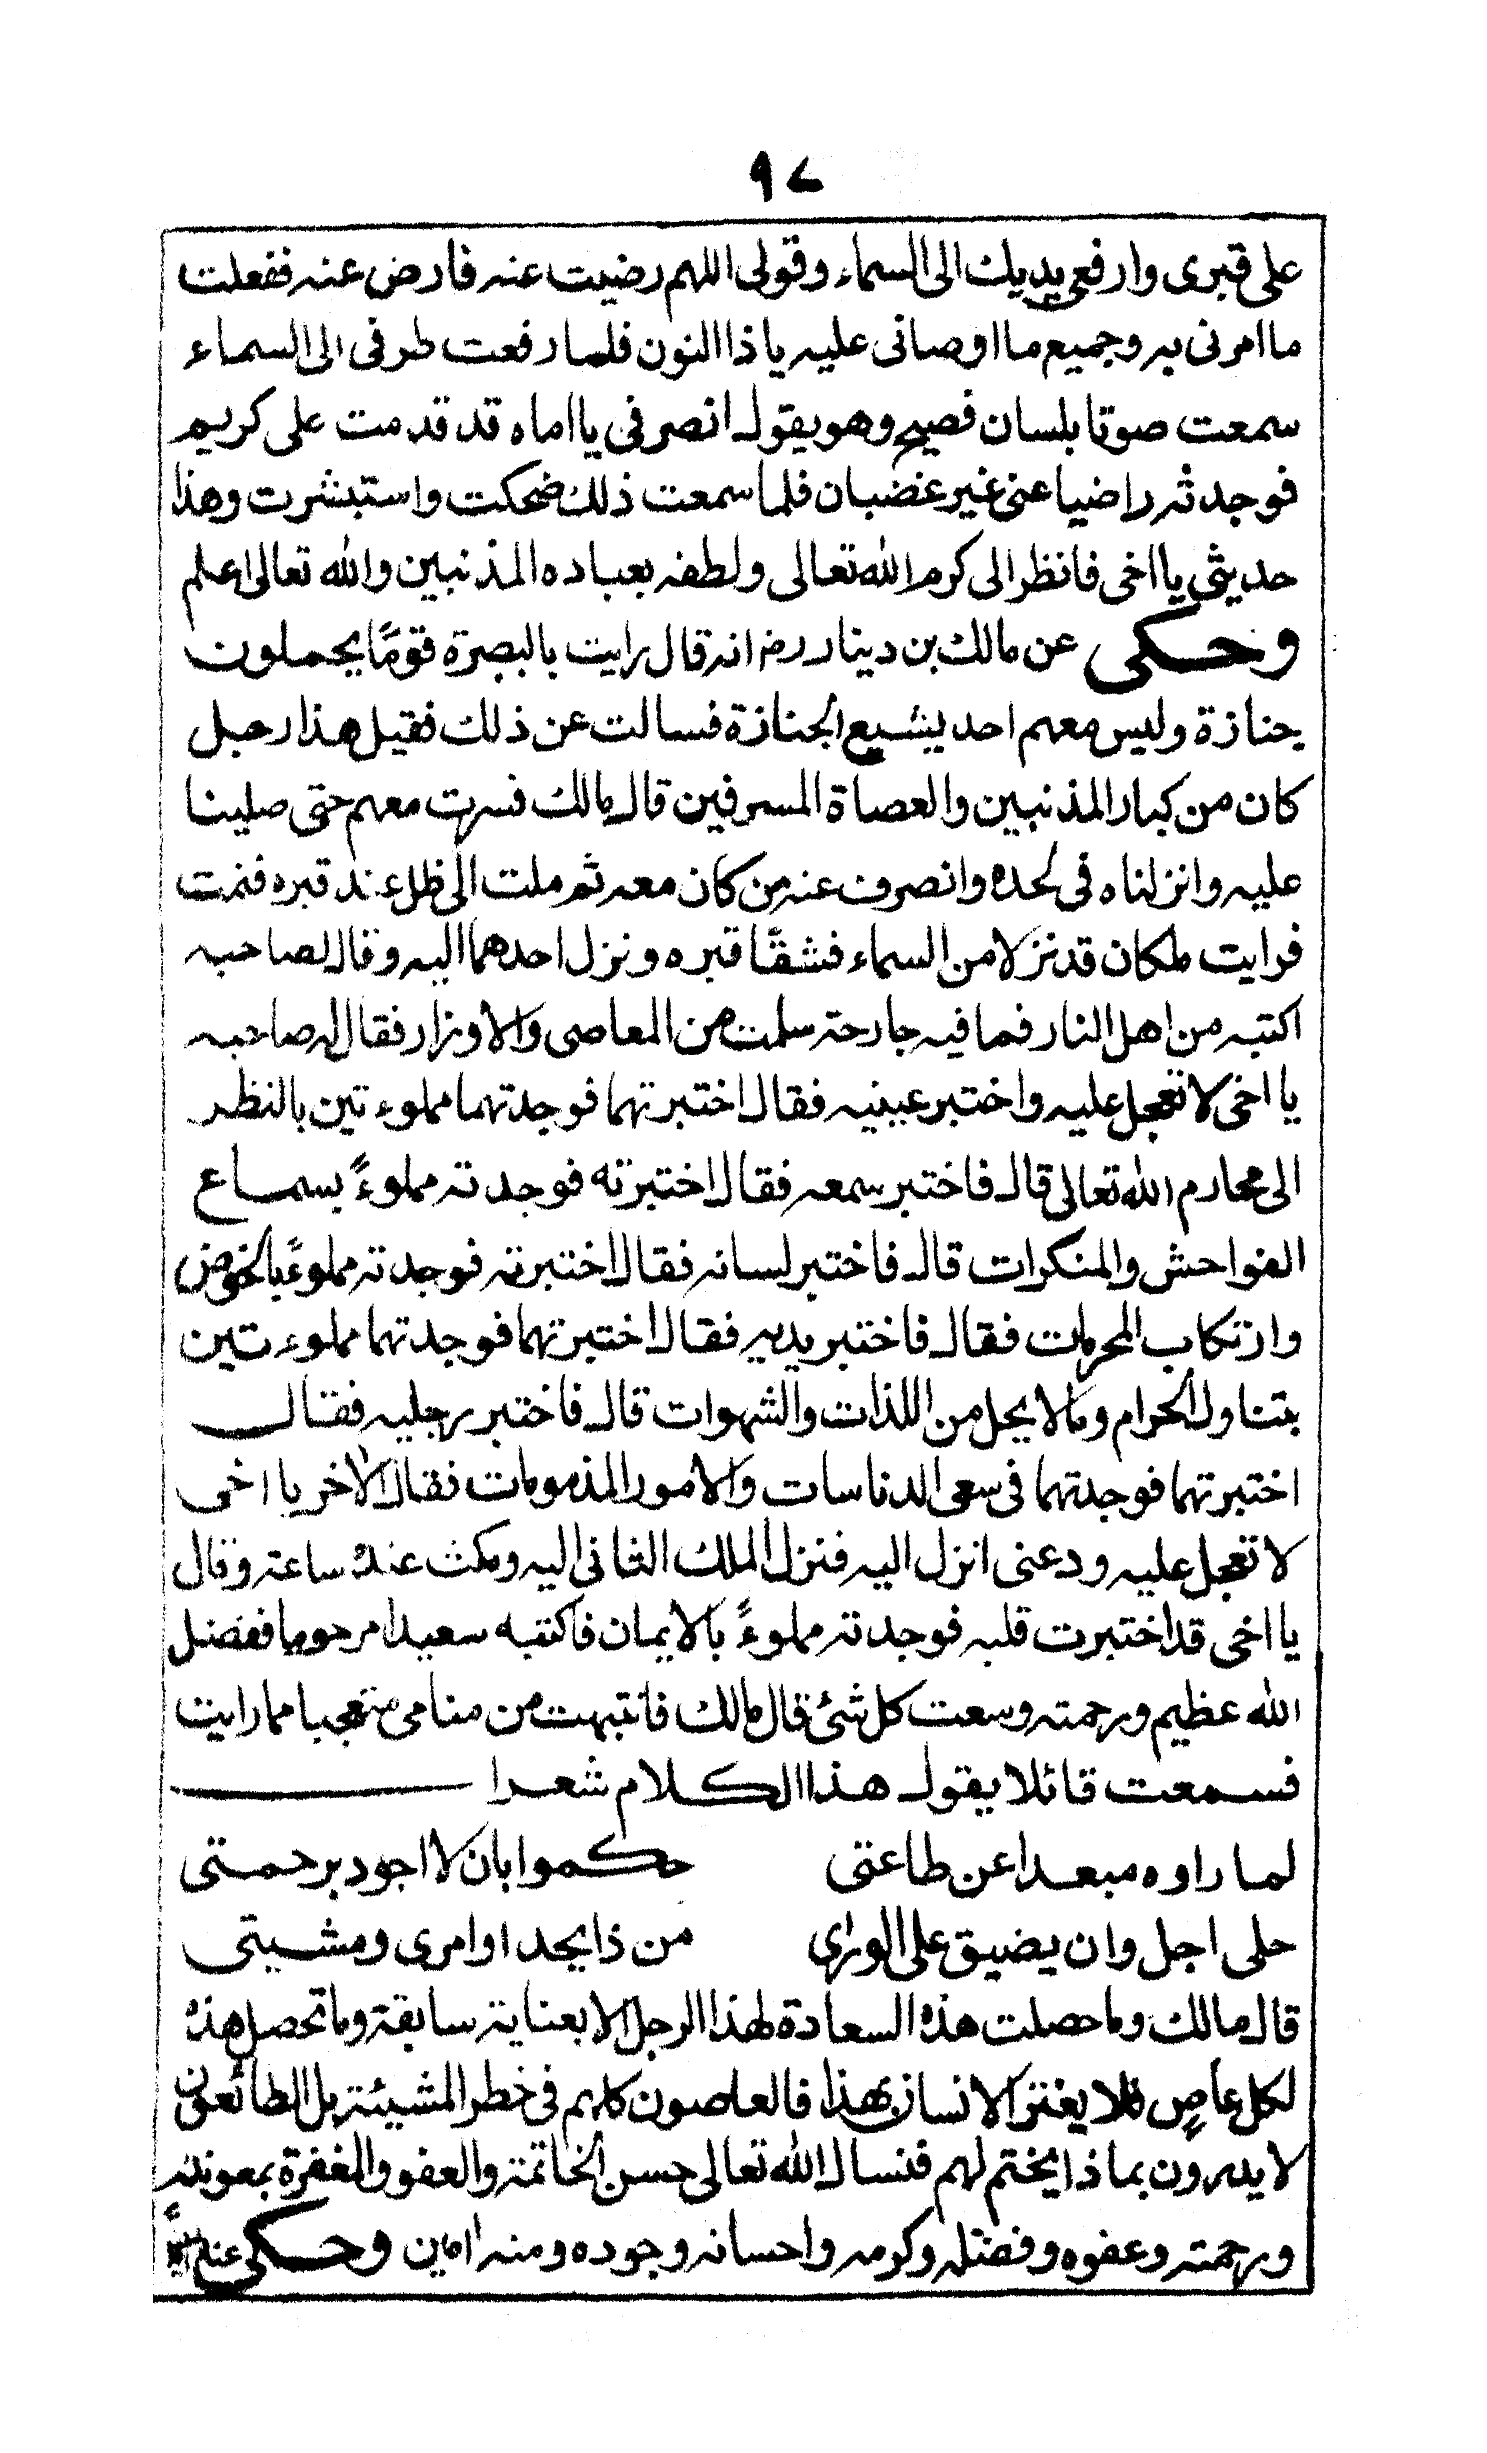 ٩٧
على قبرى وارفعى يديك الى السماء وقولى اللهم رضيت عنه فارض عنه ففعلت
ما امرنى به وجميع ما اوصانى عليه يا ذا النون فلما رفعت طرفى الى السماء
سمعت صوتا بلسان فصيح وهو يقول انصرفى يا اماه قد قدمت على كريم
فوجدته راضيا عنى غير غضبان فلما سمعت ذلك ضحكت واستبشرت وهذا
حديثى يا اخى فانظر الى كرم الله تعالى ولطفه بعباده المذنبين والله تعالى اعلم
وحكى عن مالك بن دينار رض انه قال رايت بالبصرة قومًا يحملون
جنازة وليس معهم احد يشيع الجنازة فسالت عن ذلك فقيل هذا رجل
كان من كبار المذنبين والعصاة المسرفين قال مالك فسرت معهم حتى صلينا
عليه وانزلناه فى لحده وانصرف عنه من كان معه ثم ملت الى ظل عند قبره فنمت
فرايت ملكان قد نزلا من السماء فشقّا قبره ونزل احدهما اليه وقال لصاحبه
اكتبه من اهل النار فما فيه جارحة سلمت من المعاصى والاوزار فقال له صاحبه
يا اخى لا تعجل عليه واختبر عينيه فقال اختبرتهما فوجدتهما مملوءتين بالنظر
الى محارم الله تعالى قال فاختبر سمعه فقال اختبرته فوجدته مملوءً بسماع
الفواحش والمنكرات قال فاختبر لسانه فقال اختبرته فوجدته مملوءً بالخوض
وارتكاب المحرمات فقال فاختبر يديه فقال اختبرتهما فوجدتهما مملوءتين
بتناول الحرام وما لا يحل من اللذات والشهوات قال فاختبر رجليه فقال
اختبرتهما فوجدتهما فى سعى الدناسات والامور المذمومات فقال الاخر يا اخى
لا تعجل عليه ودعنى انزل اليه فنزل الملك الثانى اليه ومكث عنده ساعة وقال
يا اخى قد اختبرت قلبه فوجدته مملوءً بالايمان فاكتبه سعيدا مرحوما ففضل
الله عظيم ورحمته وسعت كل شئ قال مالك فانتبهت من منامى متعجبا مما رايت
فسمعت قائلا يقول هذا الكلام شعرا
لما راوه مبعدا عن طاعتى حكموا بان لا اجود برحمتى
حلى اجل وان يضيق على الورى من ذا يحد اوامرى ومشيتى
قال مالك وما حصلت هذه السعادة لهذا الرجل الا بعناية سابقة وما تحصل هذه
لكل عاصٍ فلا يغتر الانسان بهذا فالعاصون كلهم فى خطر المشيئة بل الطائعون
لا يدرون بماذا يختم لهم فنسال الله تعالى حسن الخاتمة والعفو والمغفرة بمعونته
ورحمته وعفوه وفضله وكرمه واحسانه وجوده ومنه امين وحكى عنه